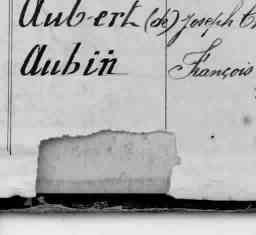 Aubert (de) Joseph
Aubin François